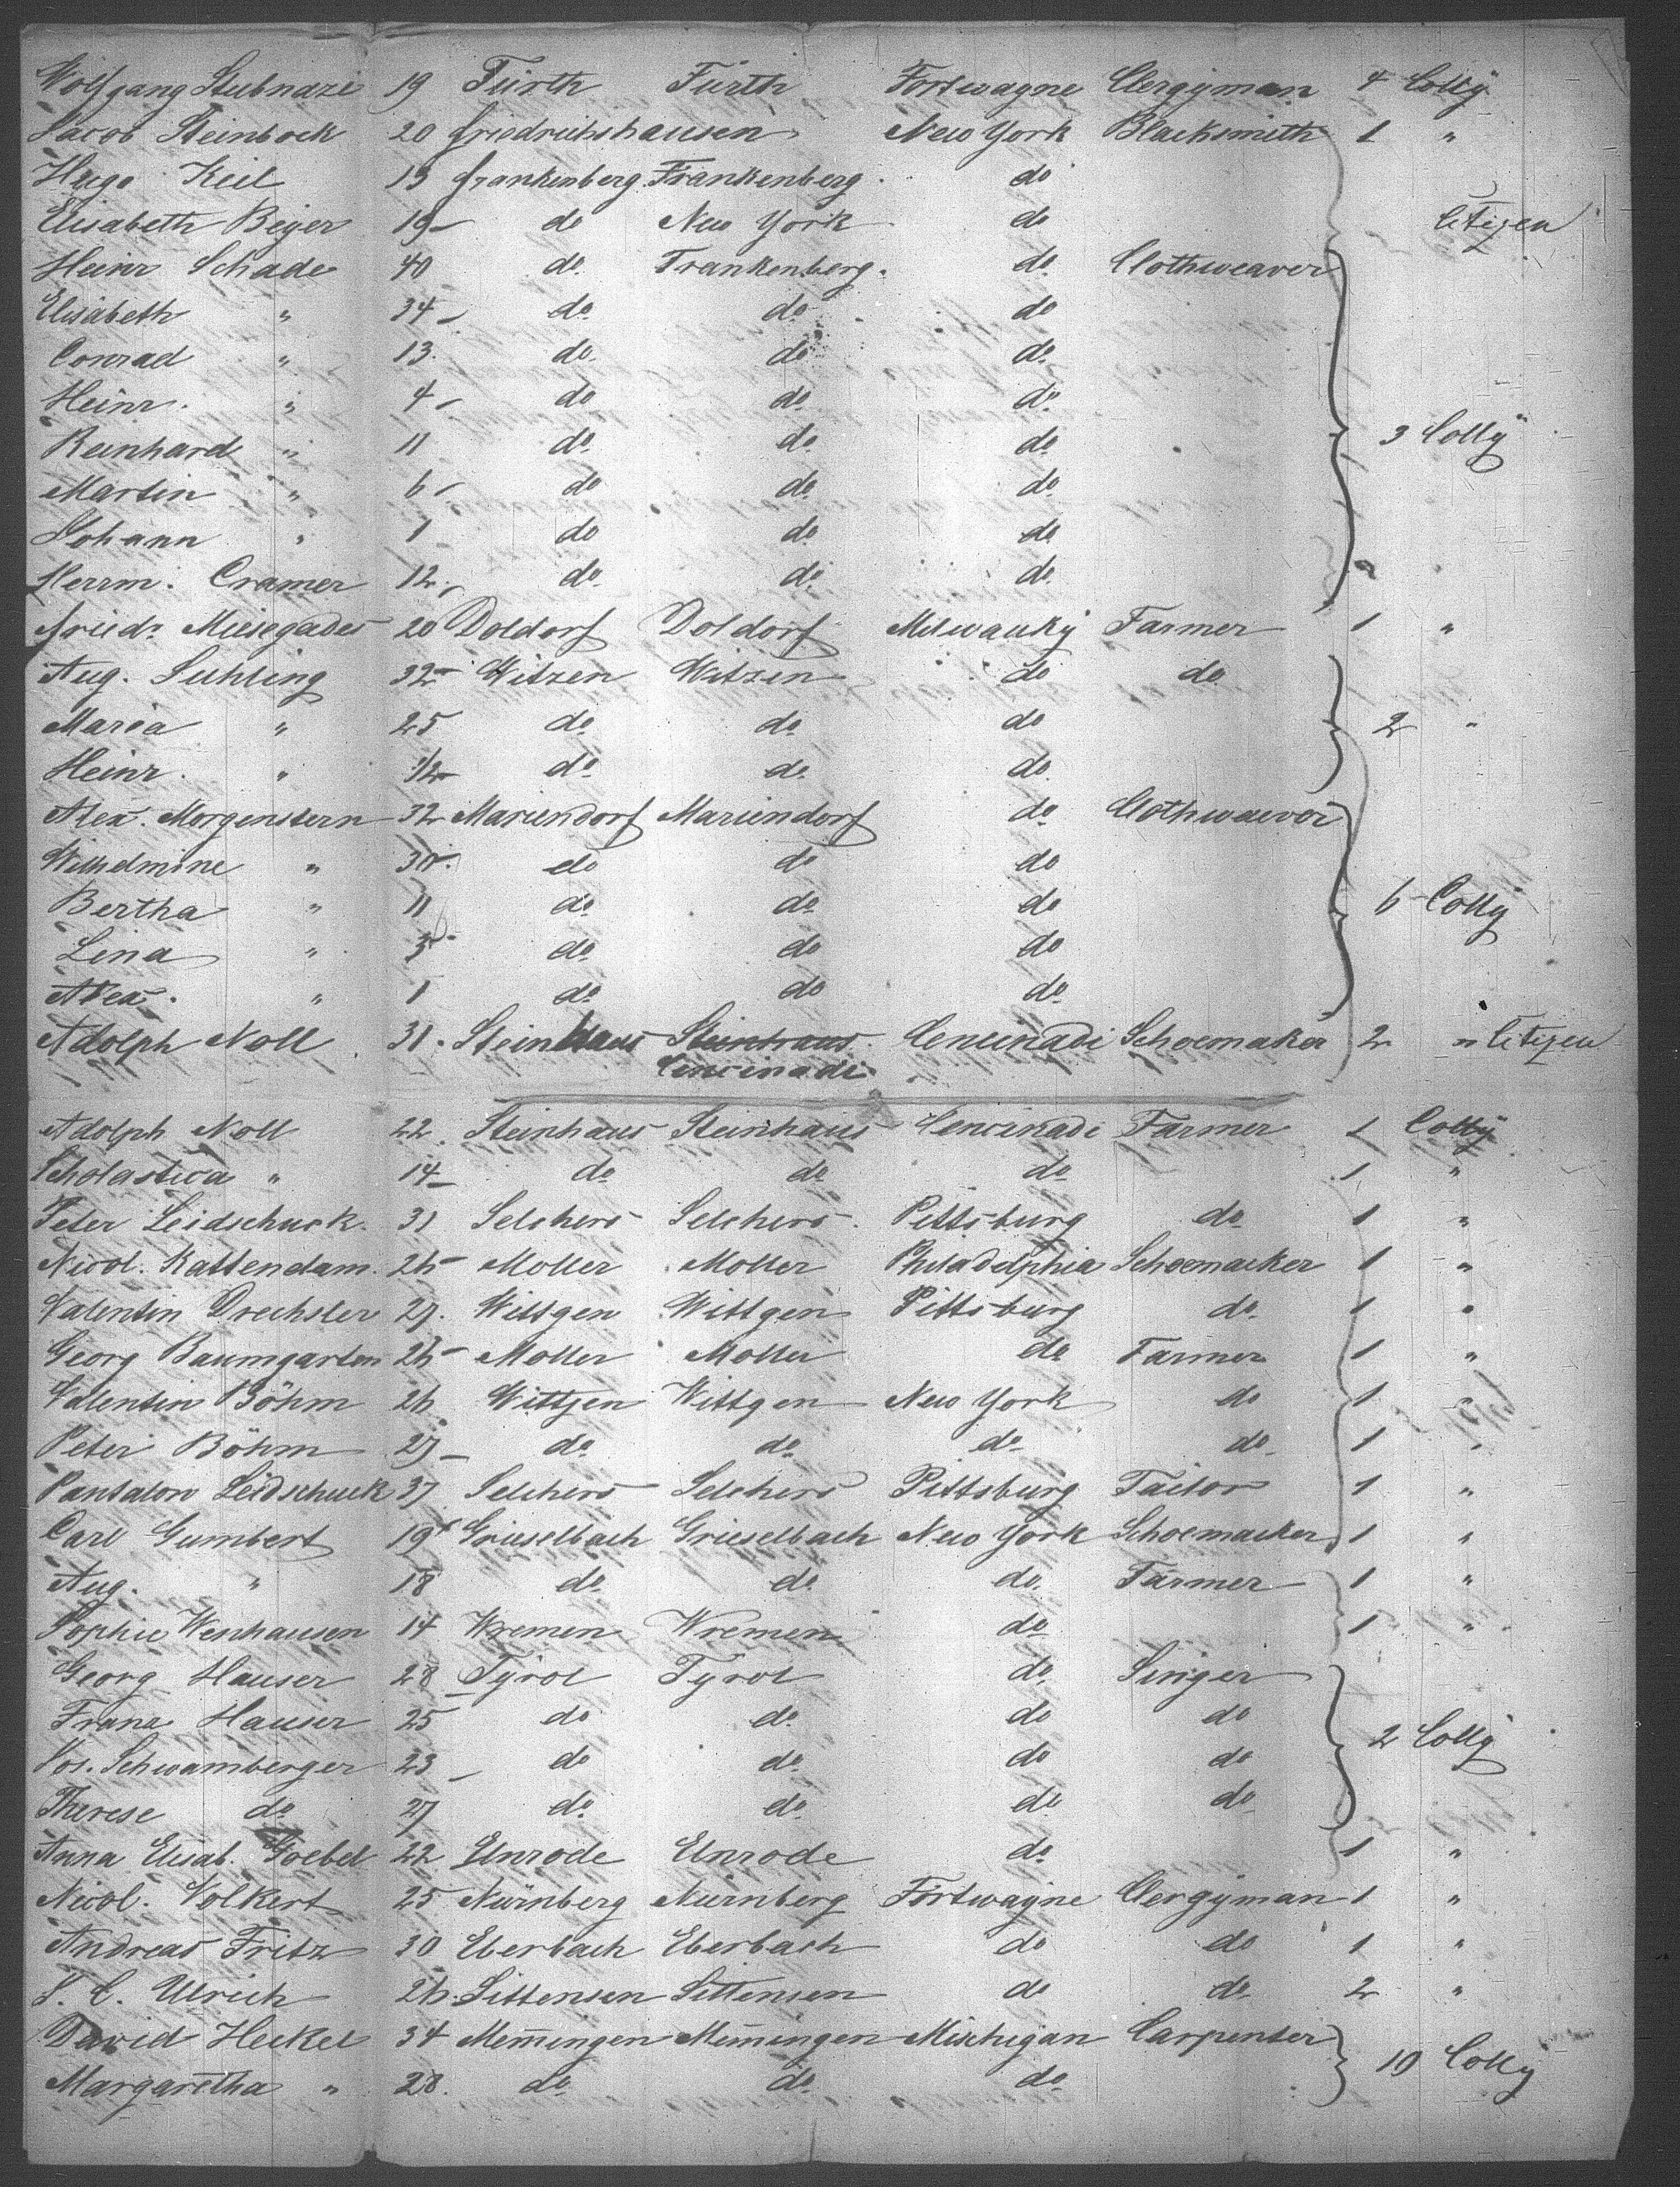 Wolfgang Stubnazi 19 Fürth Fürth Fortwagne Clergyman 4 Colly
Jacob Steinbock 20 Friedrichshausen New York Blacksmith 1 "
Hugo Keil 19 Frankenberg Frankenberg do
Elisabeth Beyer 19 do New York do Citizen
Heinr Schade 40 do Frankenberg do Clothweaver
Elisabeth " 34 do do do
Conrad " 13 do do do
Heinr. " 4 do do do
Reinhard " 11 do do do 3 Colly
Martin " 6 do do do
Johann " 1 do do do
Herrm. Cramer 12 do do do
Friedr. Miesegades 20 Doldorf Doldorf Milwauky Farmer 1 "
Aug. Suhling 32 Witzen Witzen do do
Maria " 25 do do do 2 "
Heinr. " 1/2 do do do
Alex. Morgenstern 32 Mariendorf Mariendorf do Clothwaever
Wilhelmine " do do do
Bertha " 11 do do do 6 Colly
Lina " do do do
Alex. " 1 do do do
Adolph Noll 31 Steinhaus Steinhaus Cencinadi Schoemaker 2 " Citizen
Cencinadi
Adolph Noll 22 Steinhaus Steinhaus Cencinadi Farmer 1 Colly
Scholastica " 14 do do do 1 "
Peter Leidschuck 31 Selchers Selchers Pittsburg do 1 "
Nicol. Kattendam 26 Moller Moller Philadelphia Schoemacker 1 "
Valentin Drechsler 27 Wittgen Wittgen Pittsburg do 1 "
Georg Baumgarten 26 Moller Moller do Farmer 1 "
Valentin Böhm 26 Wittgen Wittgen New York do 1 "
Peter Böhm 27 do do do do 1 "
Pantalon Leidschuck 37 Selchers Selchers Pittsburg Tailor 1 "
Carl Gumbert 19 Grieselbach Grieselbach New York Schoemacker 1 "
Aug. " 18 do do do Farmer 1 "
Sophie Wenhausen 14 Wremen Wremen do 1 "
Georg Hauser 28 Tyrol Tyrol do Singer
Franz Hauser 25 do do do do 2 Colly
Jos. Schwamberger 23 do do do do
Therese do 27 do do do do
Anna Elisab. Goebel 22 Elnrode Elnrode do 1 "
Nicol. Volkert 25 Nürnberg Nürnberg Fortwayne Clergyman 1 "
Andreas Fritz 30 Eberbach Eberbach do do 1 "
J. C. Ulrich 26 Sittensen Sittensen do do 2 "
David Heckel 34 Memingen Memingen Mischigan Carpenter 10 Colly
Margaretha " 28 do do do